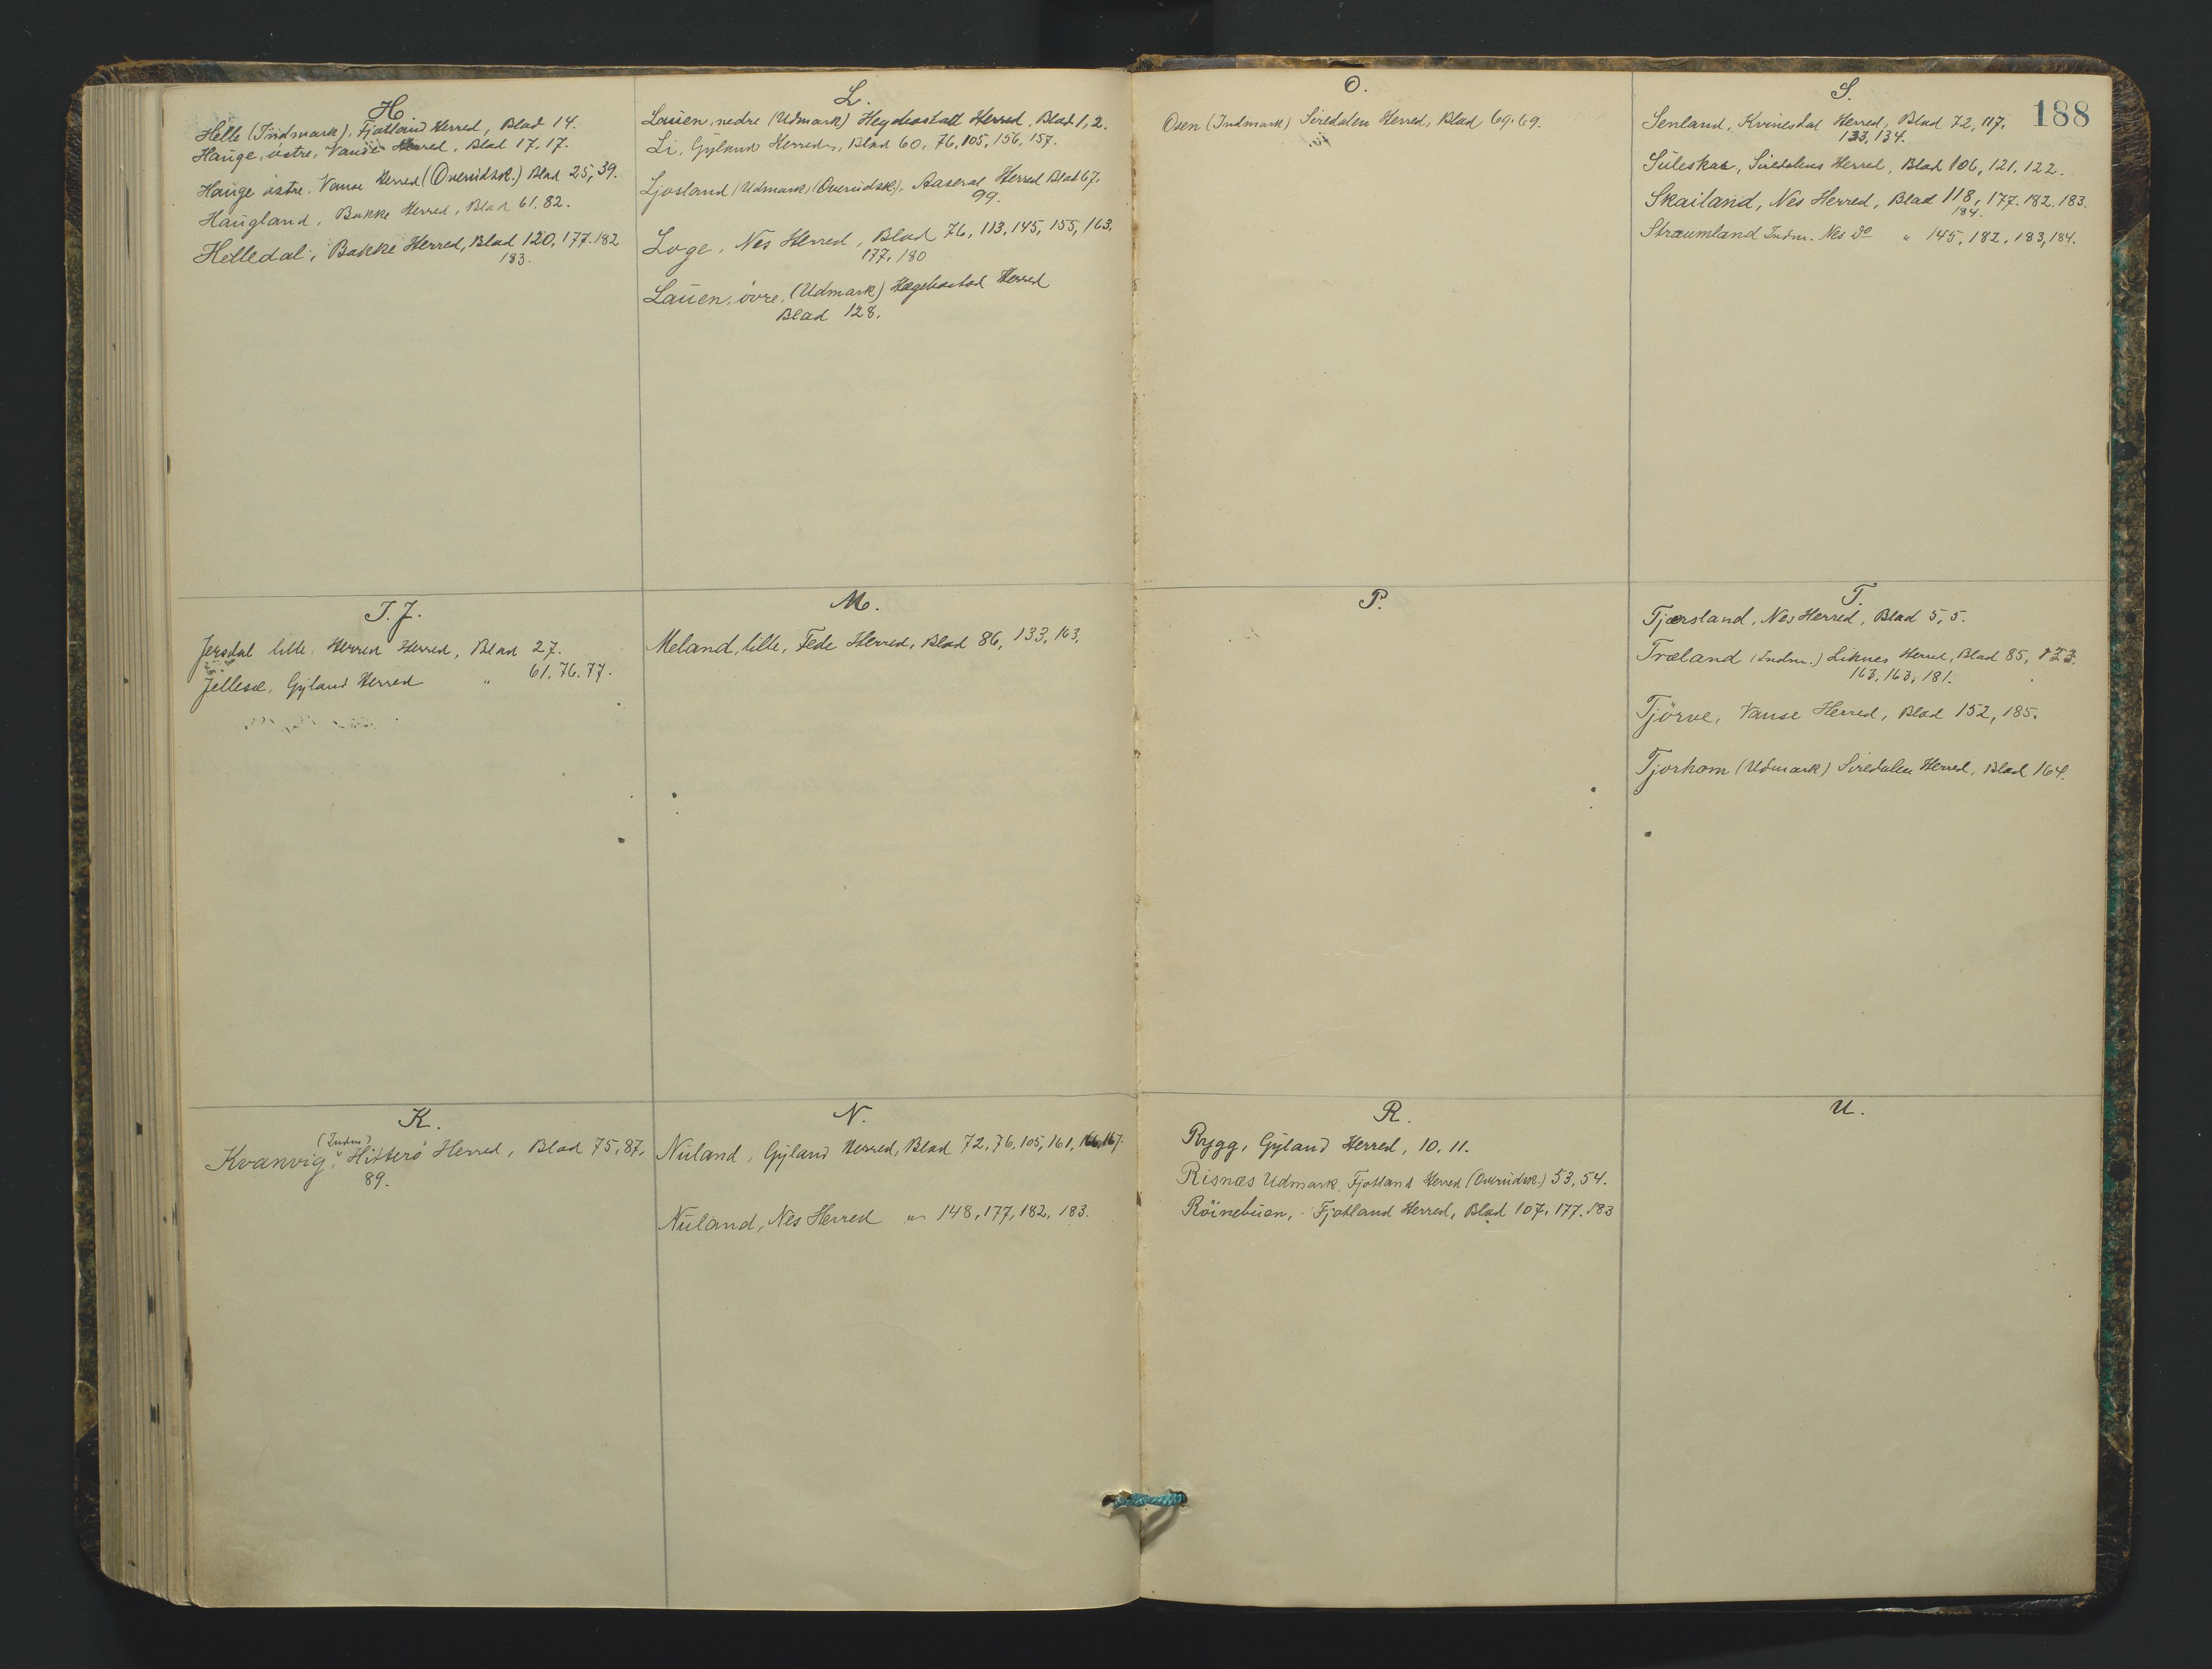 H
Helle (Indmark), Fjotland Herred, Blad 14.
Hauge, östre, Vanse Herred, Blad 17, 17.
Hauge östre. Vanse Herred (Overudsk.) Blad 25, 39.
Haugland, Bakke Herred, Blad 61, 82.
Helledal, Bakke Herred, Blad 120, 177. 182
183.
I. J.
Jerdal lille, Herred, Blad 27.
Jellesæ, Gyland Herred " 61. 76. 77.
K.
(Indm)
Kvanvig, Hitterö Herred, Blad 75, 87,
89.
L.
Lauen, nedre (Udmark) Herred, Blad 1, 2.
Li, Gyland Herreds, Blad 60, 76, 105, 156, 157.
Ljosland (Udmark) (Overudsk.), Aaseral Herred Blad 67,
99.
Loge, Nes Herred, Blad 76, 113, 145, 155, 163.
177, 180
Lauen, övre, (Udmark) Hægebostad Herred
Blad 128.
M.
Meland, lille, Fede Herred, Blad 86, 133, 163.
N.
Nuland, Gyland Herred, Blad 72, 76, 105, 161, 166, 167.
Nuland, Nes Herred " 148, 177, 182, 183.
O.
Osen (Indmark) Siredalen Herred, Blad 69. 69.
P.
R.
Rygg, Gyland Herred, 10. 11.
Risnæs Udmark, Fjotland Herred (Overudsk.) 53, 54.
Röinebuen, Fjotland Herred, Blad 107, 177. 183
188
S.
Senland, Kvinesdal Herred, Blad 72, 117,
133, 134.
Suleskar, Siredalens Herred, Blad 106, 121, 122.
Skailand, Nes Herred, Blad 118, 177. 182. 183.
184.
Straumland Indm. Nes Do " 145, 182, 183, 184.
T.
Tjærsland, Nes Herred, Blad 5, 5.
Træland (Indm.) Liknes Herred, Blad 85, 133.
163, 163, 181.
Tjörve, Vanse Herred, Blad 152, 185.
Tjorhom (Udmark) Siredalen Herred, Blad 164.
U.